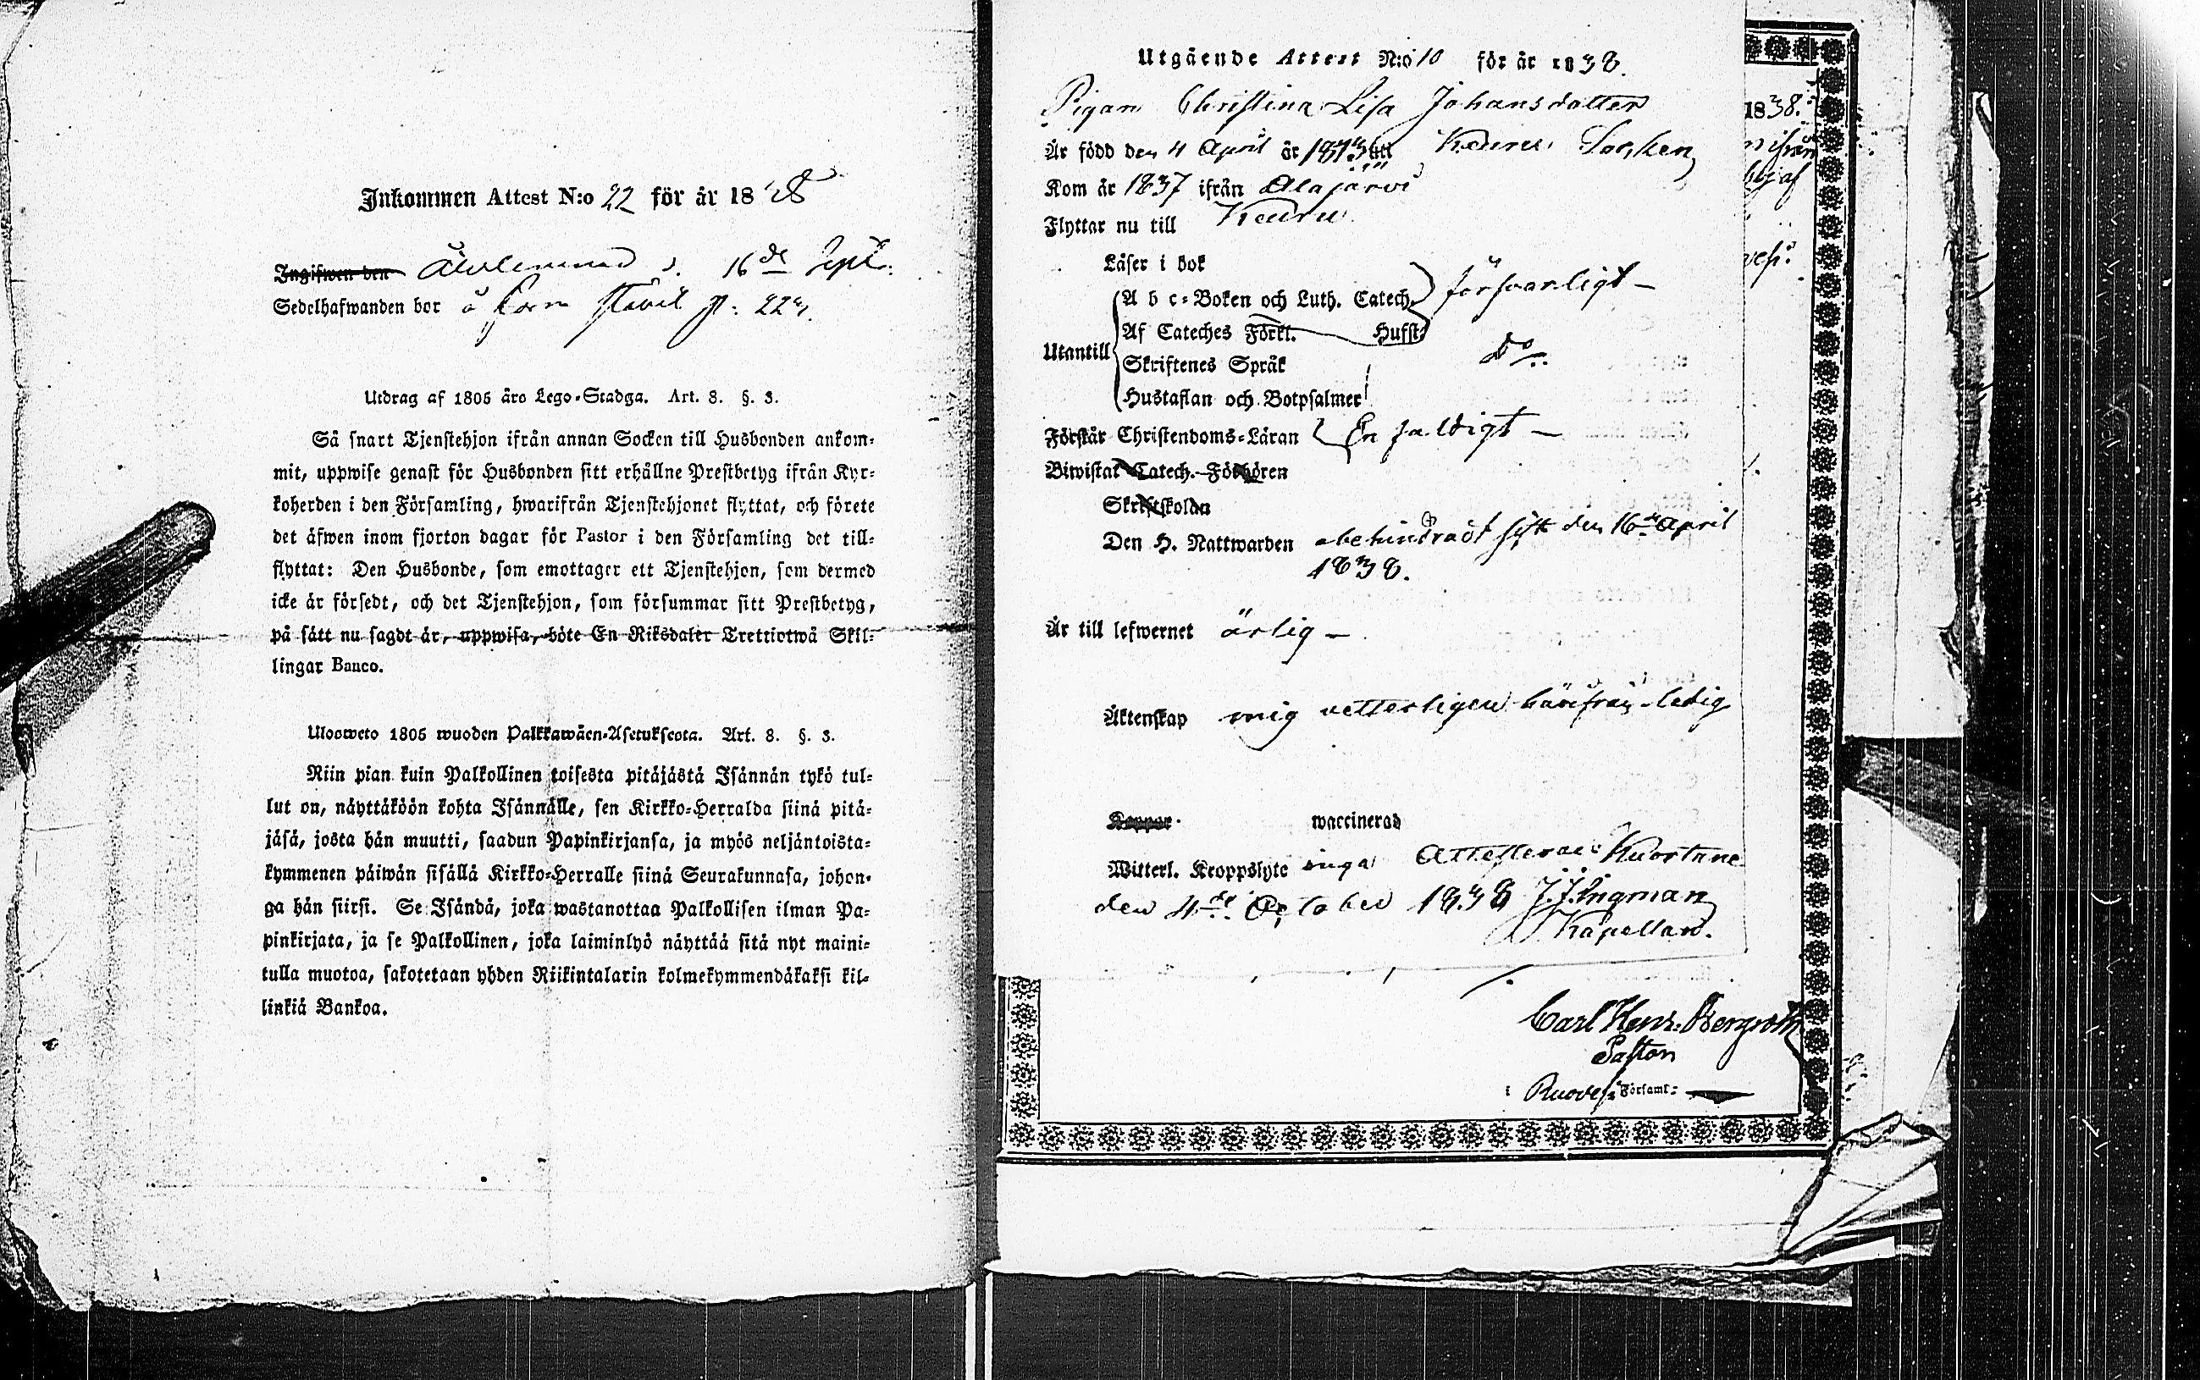 Inkommen Attest N:o 22 för år 18
Ingifwen den 16de Sept:
Sedelhafwanden bor å p: 22.
Utdrag af 1805 åra Lego-Stadga. Art. 8. §. 3.
Så snart Tjenstehjon ifrån annan Socken till Husbonden ankom-
mit, uppwise genast för Husbonden sitt erhållne Prestbetyg ifrån Kyr-
koherden i den Församling, hwarifrån Tjenstehjonet flyttat, och förete
det äfwen inom fjorton dagar för Pastor i den Församling det till-
flyttat: Den Husbonde, som emottager ett Tjenstehjon, som dermed
icke är försedt, och det Tjenstehjon, som försummar sitt Prestbetyg,
på sätt nu sagdt är, uppwisa, böte En Riksdaler Trettiotwå Skil-
lingar Banco.
Ulosweto 1805 wuoden Palkkawäen-Asetuksesta. Art. 8. §. 3.
Niin pian kuin Palkollinen toisesta pitäjästä Isännän tykö tul-
lut on, näyttäköön kohta Isännälle, sen Kirkko-Herralda siinä pitä-
jäsä, josta hän muutti, saadun Papinkirjansa, ja myös neljäntoista-
kymmenen päiwän sisällä Kirkko-Herralle siinä Seurakunnasa, johon-
ga hän siirsi. Se Isändä, joka wastanottaa Palkollisen ilman Pa-
pinkirjata, ja se Palkollinen, joka laiminlyö näyttää sitä nyt maini-
tulla muotoa, sakotetaan yhden Riikintalarin kolmekymmendäkaksi kil-
linkiä Bankoa.
Utgående Attest N:o 10 för år 1838.
Pigan Christina Lisa Johansdotter
Är född den 4 April år 1813 uti Keuru Socken
Kom år 1837 ifrån Alajärvi
Flyttar nu till Keuru
Läser i bok
A b c-Boken och Luth. Catech. försvarligt
Af Cateches Förkl. Husft.
Utantill
Skriftenes Språk Do.
Hustaflan och Botpsalmer
Förstår Christendoms-Läran Enfaldigt
Biwistat Catech. Förhören
Skriftskolan
Den H. Nattwarden obehindradt sist den 16de April
1838.
Är till lefwernet ärlig
Äktenskap mig vetterligen härifrån ledig
Koppor waccinerad
Witterl. Kroppslyte inga Attesterar Kuortane
den 4de October 1838 J.J. Ingman
Kapellan.
1838.
Carl Henr. Bergroth
Pastor
i Ruovesi Församl: